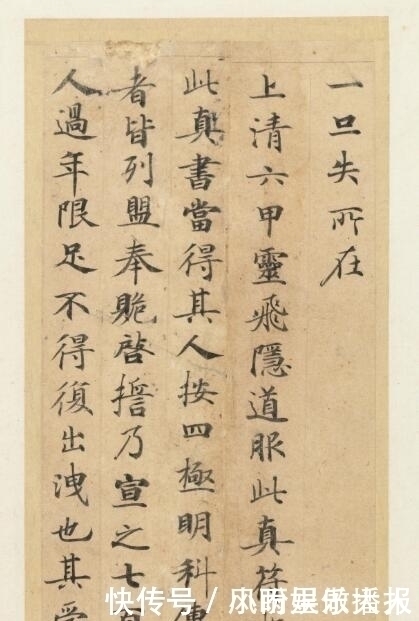 一旦失所在
上清六甲靈飛隱道服此真符
此真書當得其人按四極明科傳
者皆列盟奉貺啓誓乃宣之七百
人過年限足不得復出洩也其受
快传号 /